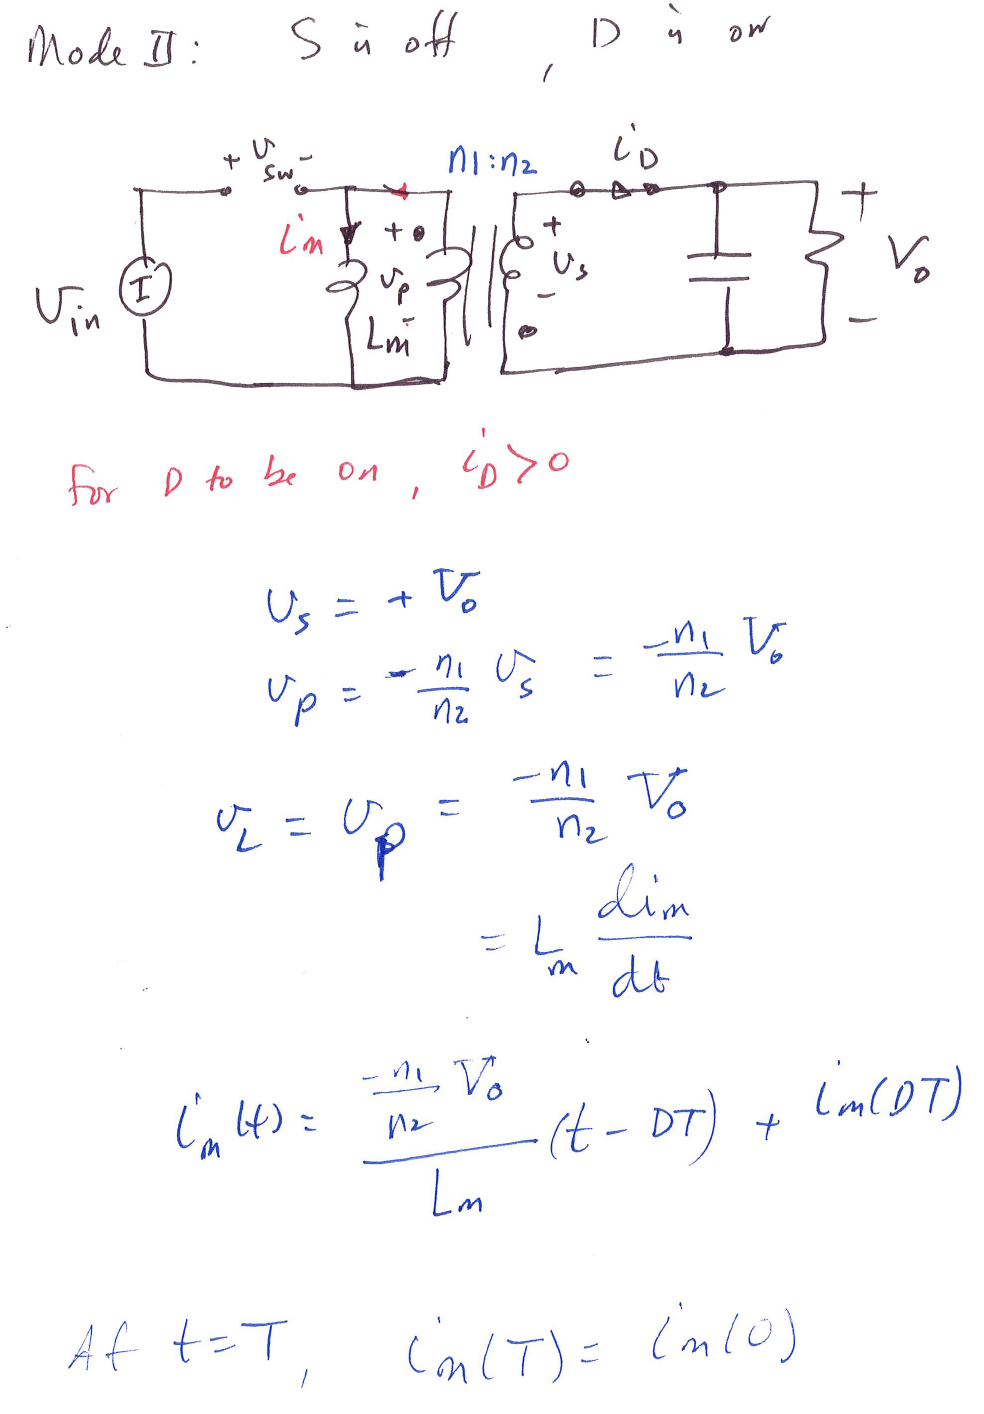 Mode II: S is off, D is on
+ v_sw - n1:n2 i_D
i_m + v_p - + v_s - + V_o -
V_in I L_m
for D to be on, i_D > 0
v_s = + V_o
v_p = - n1/n2 v_s = -n1/n2 V_o
v_L = v_p = -n1/n2 V_o
= L_m di_m/dt
i_m(t) = (-n1/n2 V_o)/L_m (t - DT) + i_m(DT)
At t = T, i_m(T) = i_m(0)